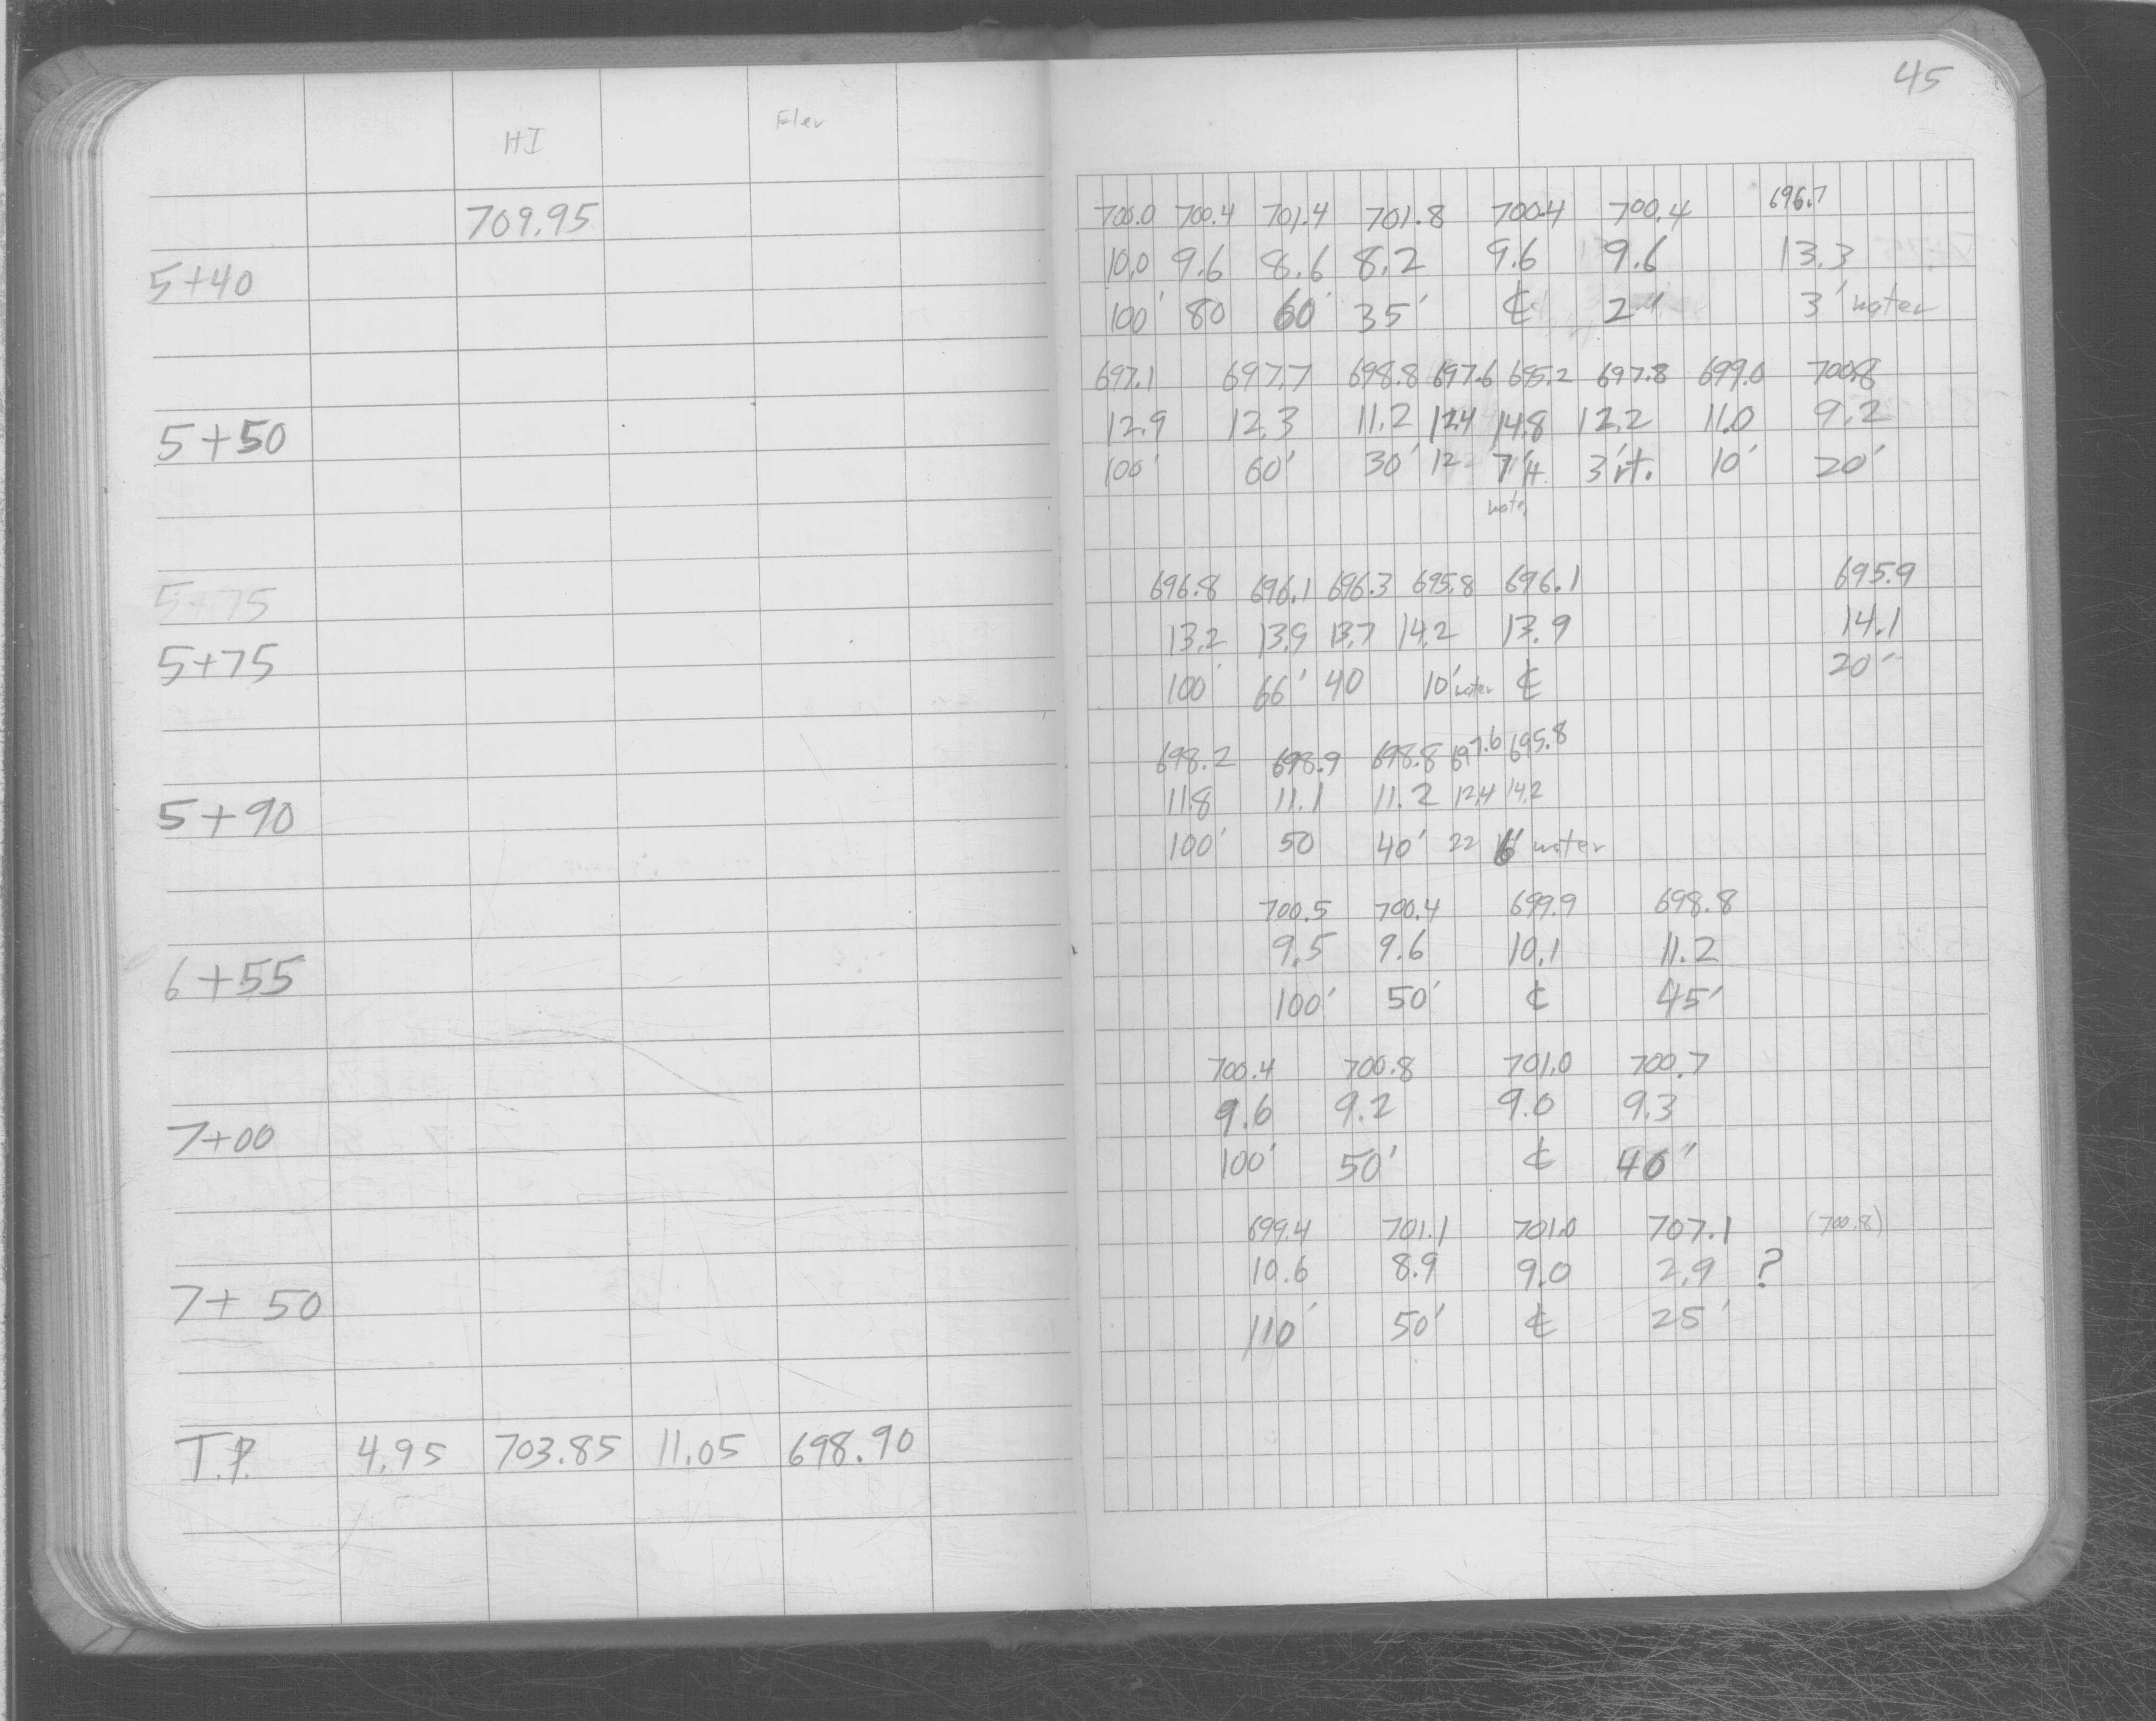 45
HI Elev
709.95
700.0 700.4 701.4 701.8 700.4 700.4 696.7
5+40 10.0 9.6 8.6 8.2 9.6 9.6 13.3
100' 80 60' 35' ℄ 2' 3' water
697.1 697.7 698.8 697.6 695.2 697.8 699.0 700.8
5+50 12.9 12.3 11.2 12.4 14.8 12.2 11.0 9.2
100' 60' 30' 12 7' lt. 3' rt. 10' 20'
water
5+75 696.8 696.1 696.3 695.8 696.1 695.9
5+75 13.2 13.9 13.7 14.2 13.9 14.1
100' 66' 40 10' water ℄ 20'
698.2 698.9 698.8 697.6 695.8
5+90 11.8 11.1 11.2 12.4 14.2
100' 50 40' 22 water
700.5 700.4 699.9 698.8
6+55 9.5 9.6 10.1 11.2
100' 50' ℄ 45'
700.4 700.8 701.0 700.7
7+00 9.6 9.2 9.0 9.3
100' 50' ℄ 40'
699.4 701.1 701.0 707.1 (700.8)
7+50 10.6 8.9 9.0 2.9 ?
110' 50' ℄ 25'
T.P. 4.95 703.85 11.05 698.90